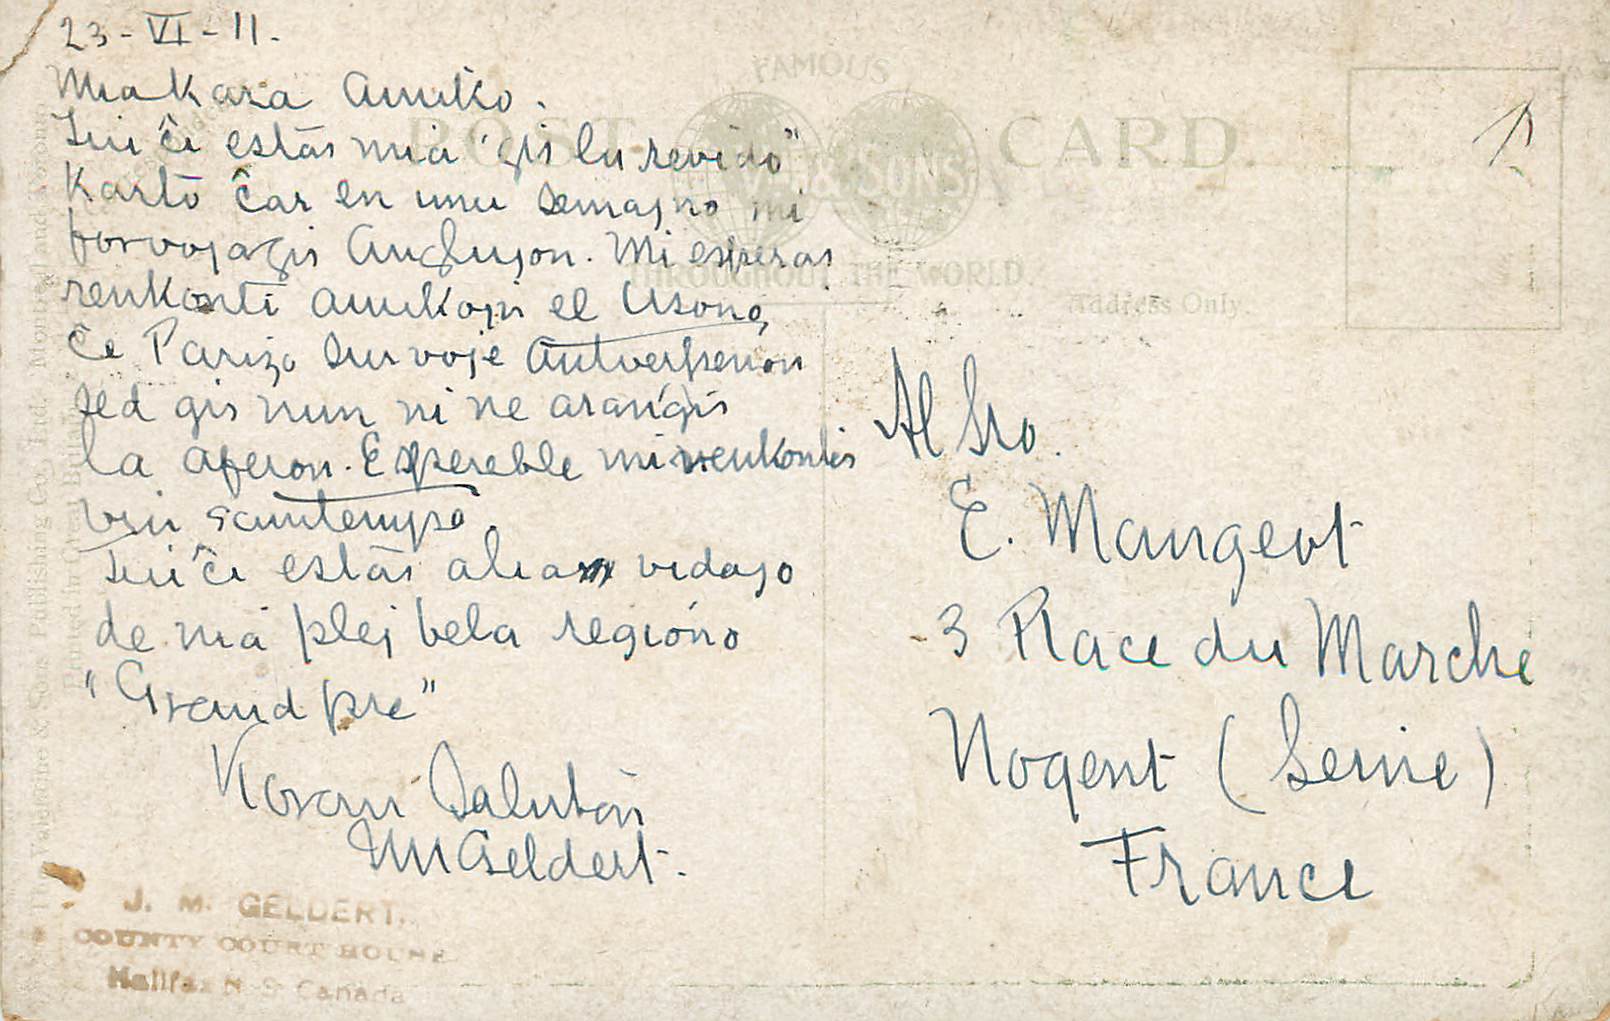 23-VI-11.
Mia Kara Amiko.
Tiu ĉi estas mia "ĝis la revido"
Karto ĉar en unu semajno mi
forvojaĝis Anglujon. Mi esperas
renkonti amikojn el Usono,
ĉe Parizo sur voje Antverpenon
sed ĝis nun ni ne aranĝis
la aferon. Espereble mi renkontis
vin samtempe.
Tiu ĉi estas alia vidajo
de nia plej bela regiono
"Grand pre"
Koran Saluton
JMGeldert.
J. M. GELDERT.
COUNTY COURT HOUSE
Halifax N S Canada
FAMOUS
POST CARD.
& SONS
THROUGHOUT THE WORLD.
Address Only.
Al Sro.
E. Mangeot
3 Place du Marche
Nogent (Seine)
France
The Valentine & Sons Publishing Co., Ltd., Montreal and Toronto
Printed in Great Britain